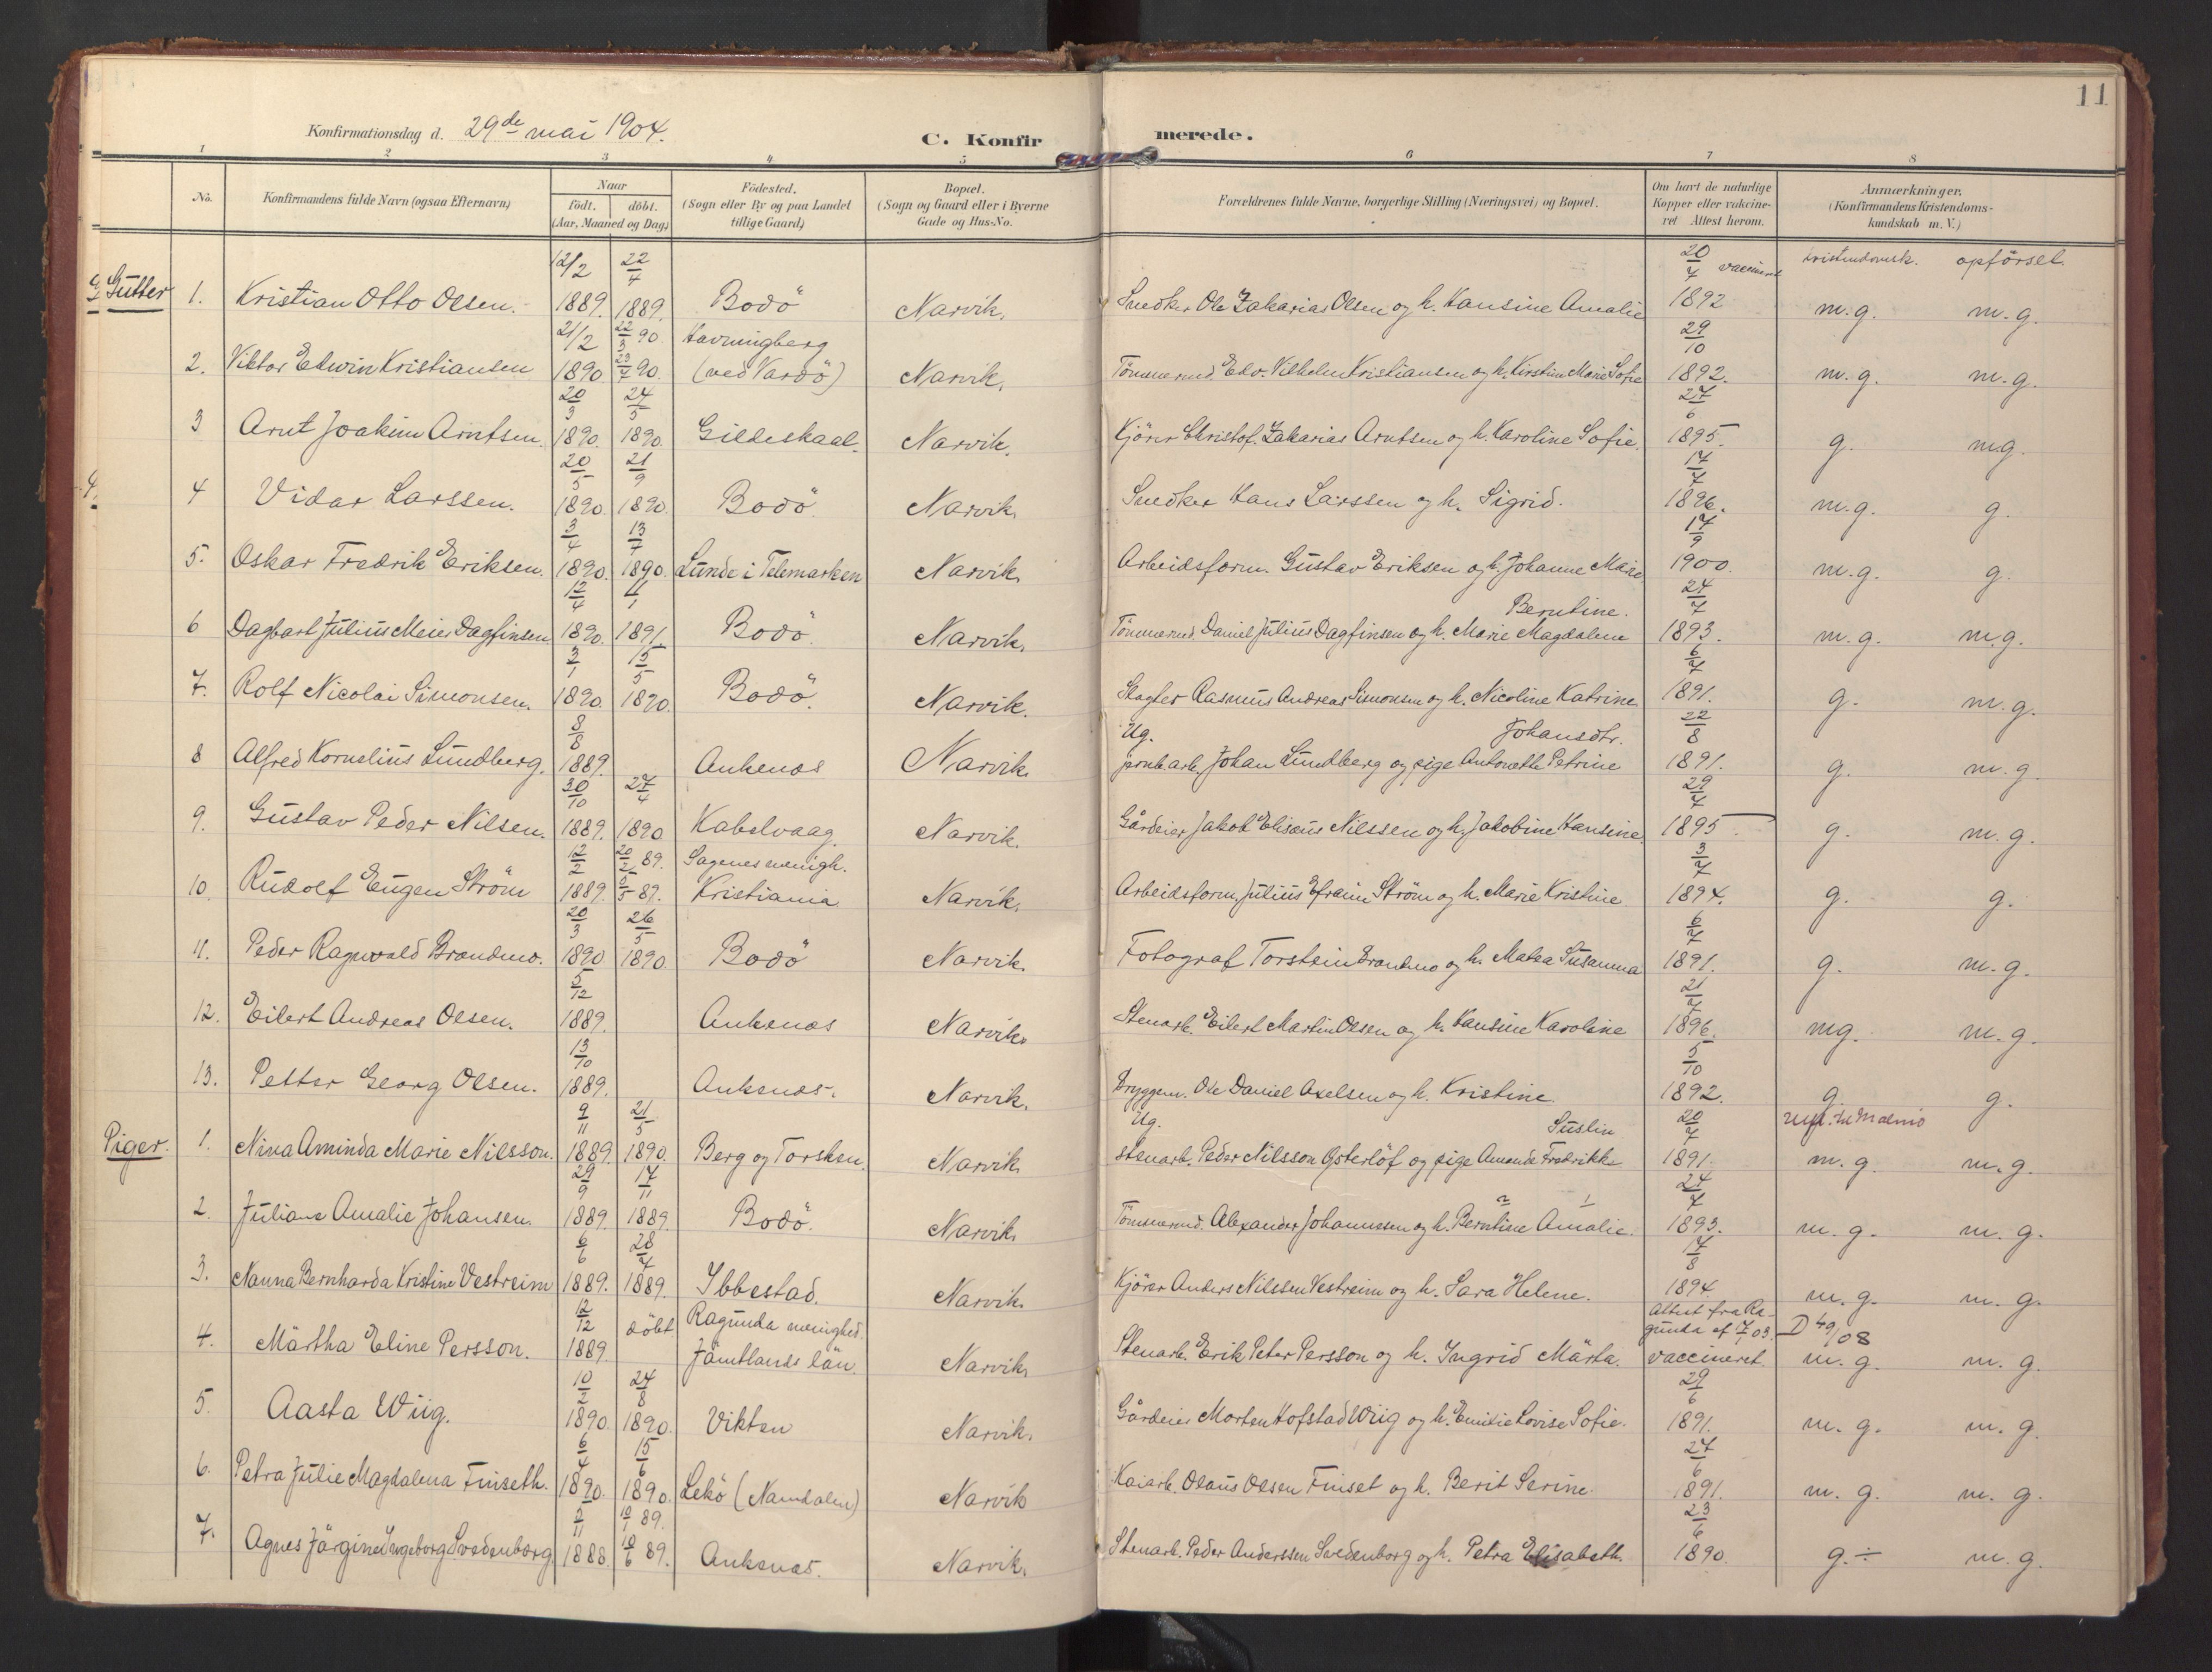 11
Konfirmationsdag d. 29de mai 1904.
C. Konfirmerede.
1 2 3 4 5 6 7 8
No.
Konfirmandens fulde Navn (ogsaa Efternavn)
Naar
født. døbt.
(Aar, Maaned og Dag)
Födested.
(Sogn eller By og paa Landet
tillige Gaard)
Bopæl.
(Sogn og Gaard eller i Byerne
Gade og Hus-No.
Forældrenes fulde Navne, borgerlige Stilling (Næringsvei) og Bopæl.
Om havt de naturlige
Kopper eller vakcine-
ret Attest herom.
Anmærkninger.
(Konfirmandens Kristendoms-
kundskab m. V.)
kristendomsk. opförsel.
Gutter 1. Kristian Otto Olsen. 12/2 1889. 22/4 1889. Bodö Narvik. Snedker Ole Zakarias Olsen og h. Hansine Amalie 20/4 1892 vaccineret m.g. m.g.
2. Viktor Edwin Kristiansen 21/2 1890. 22/3 90. 23/7 90. Havningberg (ved Vardö) Narvik. Tömmermd. Edv. Vilhelm Kristiansen og h. Kirstine Marie Sofie 29/10 1892. m.g. m.g.
3 Arnt Joakim Arntsen. 20/3 1890. 24/5 1890. Gildeskaal. Narvik. Kjörer Christof. Zakarias Arntsen og h. Karoline Sofie. 27/6 1895. g. mg.
4 Vidar Larssen. 20/5 1890. 21/9 1890. Bodö. Narvik. Snedker Hans Larssen og h. Sigrid. 17/7 1896. m.g. g.
5. Oskar Fredrik Eriksen. 3/4 1890. 13/7 1890. Lunde i Telemarken Narvik. Arbeidsform. Gustav Eriksen og h. Johanne Marie Berntine. 17/9 1900. m.g. g.
6 Dagbart Julius Meier Dagfinsen 12/4 1890. 11/1 1891. Bodö. Narvik. Tömmermd. Daniel Julius Dagfinsen og h. Marie Magdalene 24/7 1893. m.g. m.g.
7. Rolf Nicolai Simonsen. 3/1 1890. 15/5 1890. Bodö. Narvik. Slagter Rasmus Andreas Simonsen og h. Nicoline Katrine 6/7 1891. g. m.g.
8 Alfred Kornelius Lundberg. 8/8 1889. Ankenæs Narvik. Ug. jernb.arb. Johan Lundberg og pige Antonette Petrine Johansdtr. 22/8 1891. g. m.g.
9. Gustav Peder Nilsen. 30/10 1889. 27/4 1890 Kabelvaag. Narvik. Gårdeier Jakob Elisæus Nilssen og h. Jakobine Hansine. 29/7 1895. g. m.g.
10. Rudolf Eugen Ström 12/2 1889. 20/2 89. 5/5 89. Sagenes menigh. Kristiania Narvik. Arbeidsform. Julius Efraim Ström og h. Marie Kristine. 3/7 1894. g. g.
11. Peder Ragnvald Brandmo. 20/3 1890 26/5 1890. Bodö Narvik. Fotograf Torstein Brandmo og h. Matea Susanna 6/7 1891. g. m.g.
12. Eilert Andreas Olsen. 5/12 1889. Ankenæs Narvik. Stenarb. Eilert Martin Olsen og h. Hansine Karoline 21/7 1896. mg. m.g.
13. Petter Georg Olsen. 13/10 1889. Ankenæs. Narvik. Bryggem. Ole Daniel Axelsen og h. Kristine 5/10 1892. g. g.
Piger. 1. Nina Aminda Marie Nilsson. 9/11 1889. 21/5 1890. Berg og Torsken. Narvik. Ug. Stenarb. Peder Nilsson Österlöf og pige Amanda Fredrikke Suslin 20/7 1891. m.g. m.g.
2. Juliane Amalie Johansen. 29/9 1889. 17/11 1889. Bodö. Narvik. Tömmermd. Alexander Johannesen og h. Berntine Amalie. 24/7 1893. m.g. m.g.
3. Nanna Bernharda Kristine Vestreim 6/6 1889. 28/7 1889. Ibbestad. Narvik. Kjörer Anders Nilssen Vestreim og h. Sara Helene. 17/8 1894. m.g. m.g.
4. Märtha Eline Persson. 12/12 1889. döbt Ragunda menighed. Jämtlands län. Narvik. Stenarb. Erik Peter Persson og h. Ingrid Märta. Attest fra Ragunda af 7/1 03. vaccineret. D 49/08 m.g. m.g.
5. Aasta Wiig. 10/2 1890. 24/8 1890. Vikten Narvik. Gårdeier Morten Hofstad Wiig og h. Emilie Lovise Sofie. 29/6 1891. m.g. m.g.
6. Petra Julie Magdalena Finseth. 6/4 1890. 15/6 1890. Lekö (Namdalen) Narvik Kaiarb. Olaus Olsen Finset og h. Berit Serine. 27/6 1891. m.g. m.g.
7. Agnes Jörgine Ingeborg Svedenborg 1888. 10/1 89. 10/6 89. Ankenæs. Narvik. Stenarb. Peder Anderssen Svedenborg og h. Petra Elisabeth. 23/6 1890. g.÷ m.g.